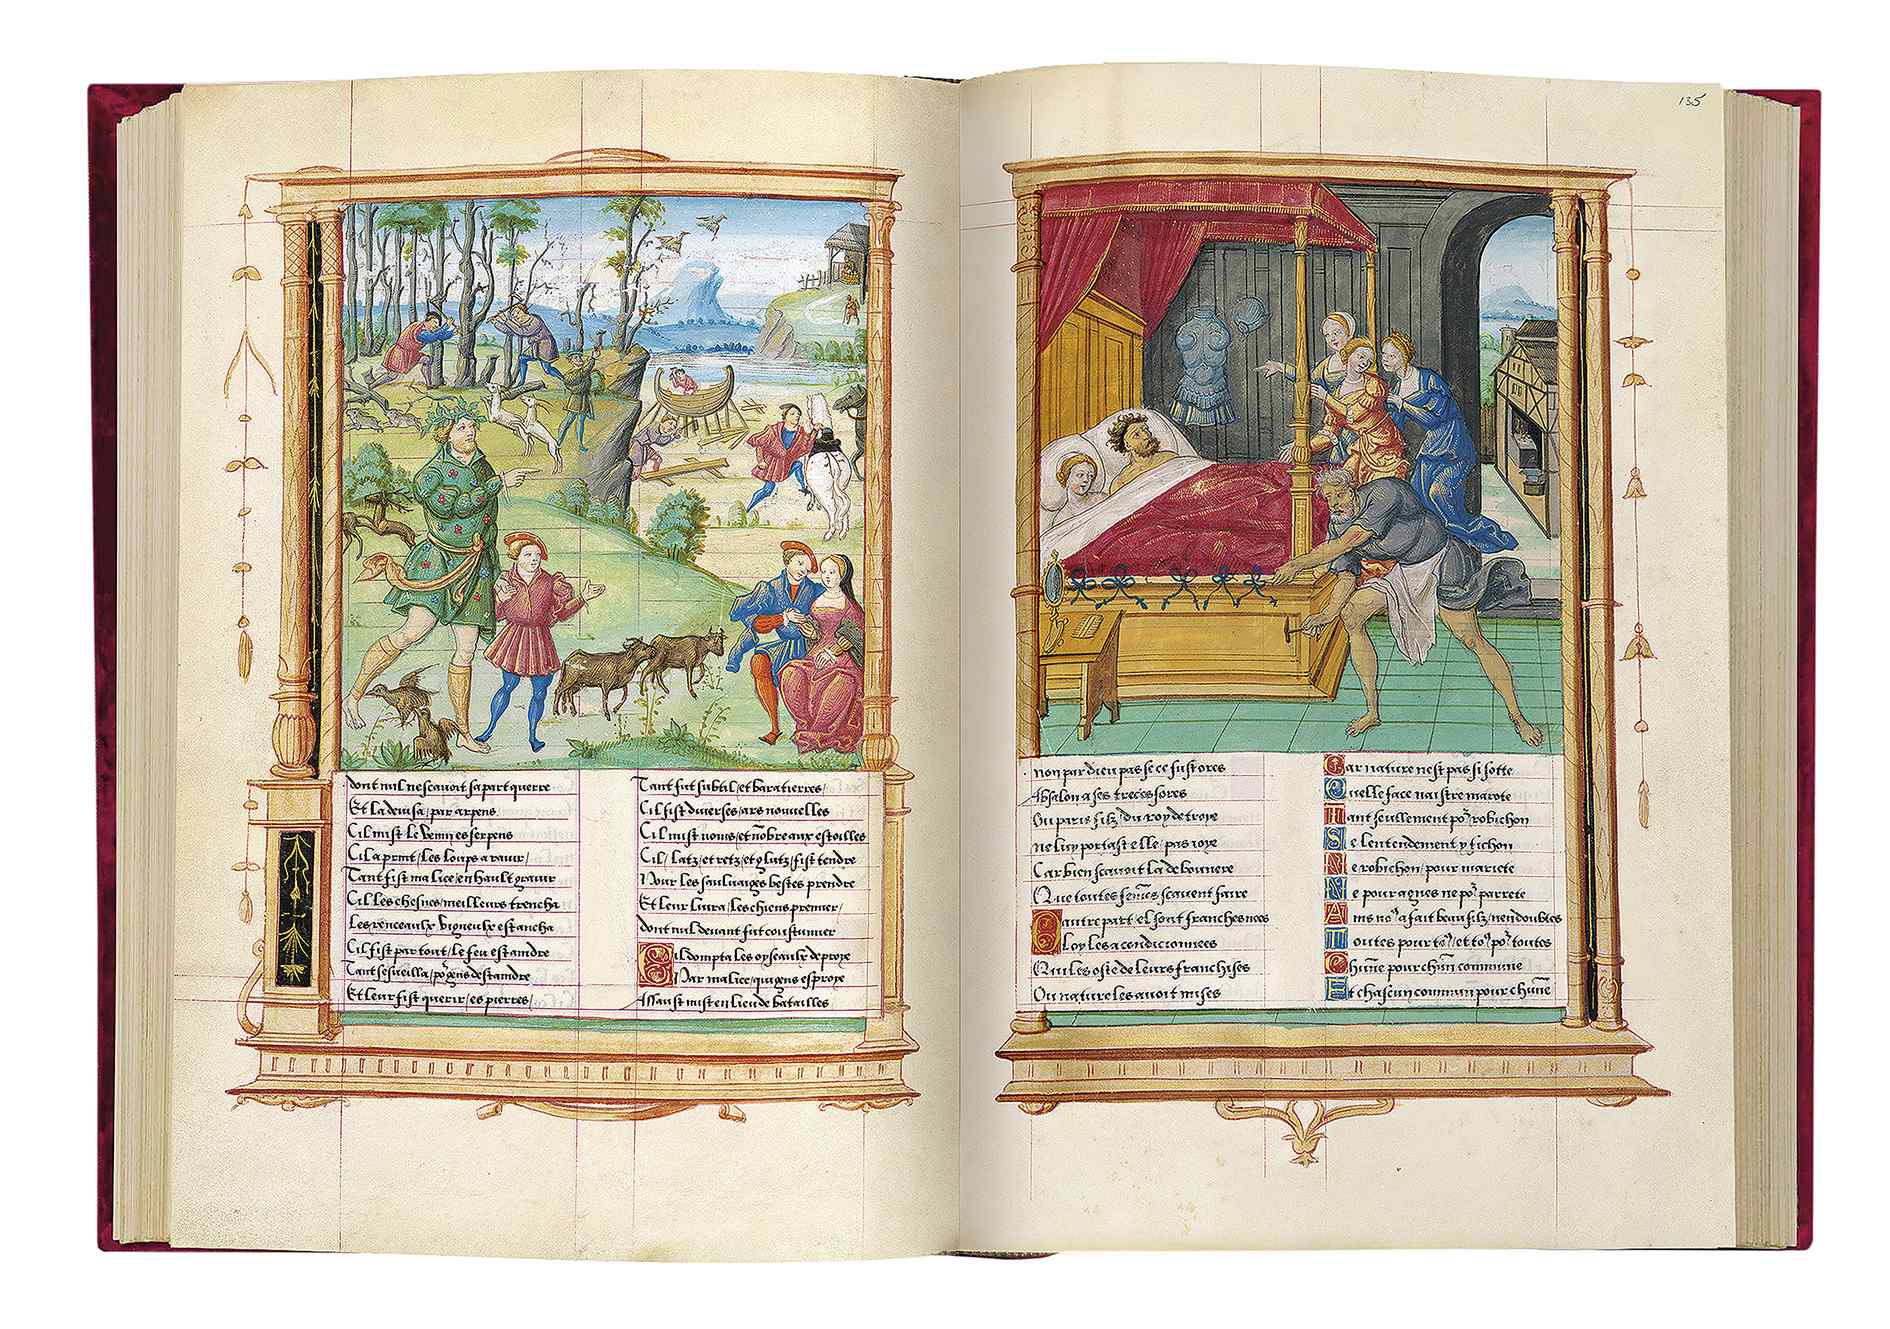 dont nul ne scavoit sa part querre
Et la devisa/par arpens
Cil mist le venin es serpens
Cil aprint/les loups a ravir/
Tant fist malice/en hault gravir
Cil les chesnes/meilleurs trencha
Les renceaulx vigneulx estancha
Cil fist par tout/le feu estaindre
Tant sesveilla/po gens destaindre
Et leur fist querir/es pierres/
Tant fut subtil/et baratierres/
Cil fist diverses/ars nouvelles
Cil mist noms/et nōbre aux estoilles
Cil/latz/et retz/et glutz/fist tendre
Pour les saulvaiges bestes prendre
Et leur livra/les chiens premier/
dont nul devant fut coustumier
Cil dompta les oyseaulx de proye
Par malice/qui gens esproye
Assaust mist en lieu de batailles
135
non par dieu pas se ce fust ores
Absalon a ses treces sores
Ou paris filz/du roy de troye
ne luy portast elle/pas ioye
Car bien scavoit la debonnere
Que toutes femēs scavent faire
Dautre part/el sont franches nees
Loy les a condicionnees
Qui les oste de leurs franchises
Ou nature les avoit mises
Car nature nest pas si sotte
Quelle face naistre marote
Tant seullement po robichon
Se lentendement y fichon
Ne robichon/pour mariete
Ne pour agnes ne po parrete
Ains no a fait beau filz/nen doubtes
Toutes pour to/et to po toutes
Chūne pour chūn commune
Et chascun commun pour chūne